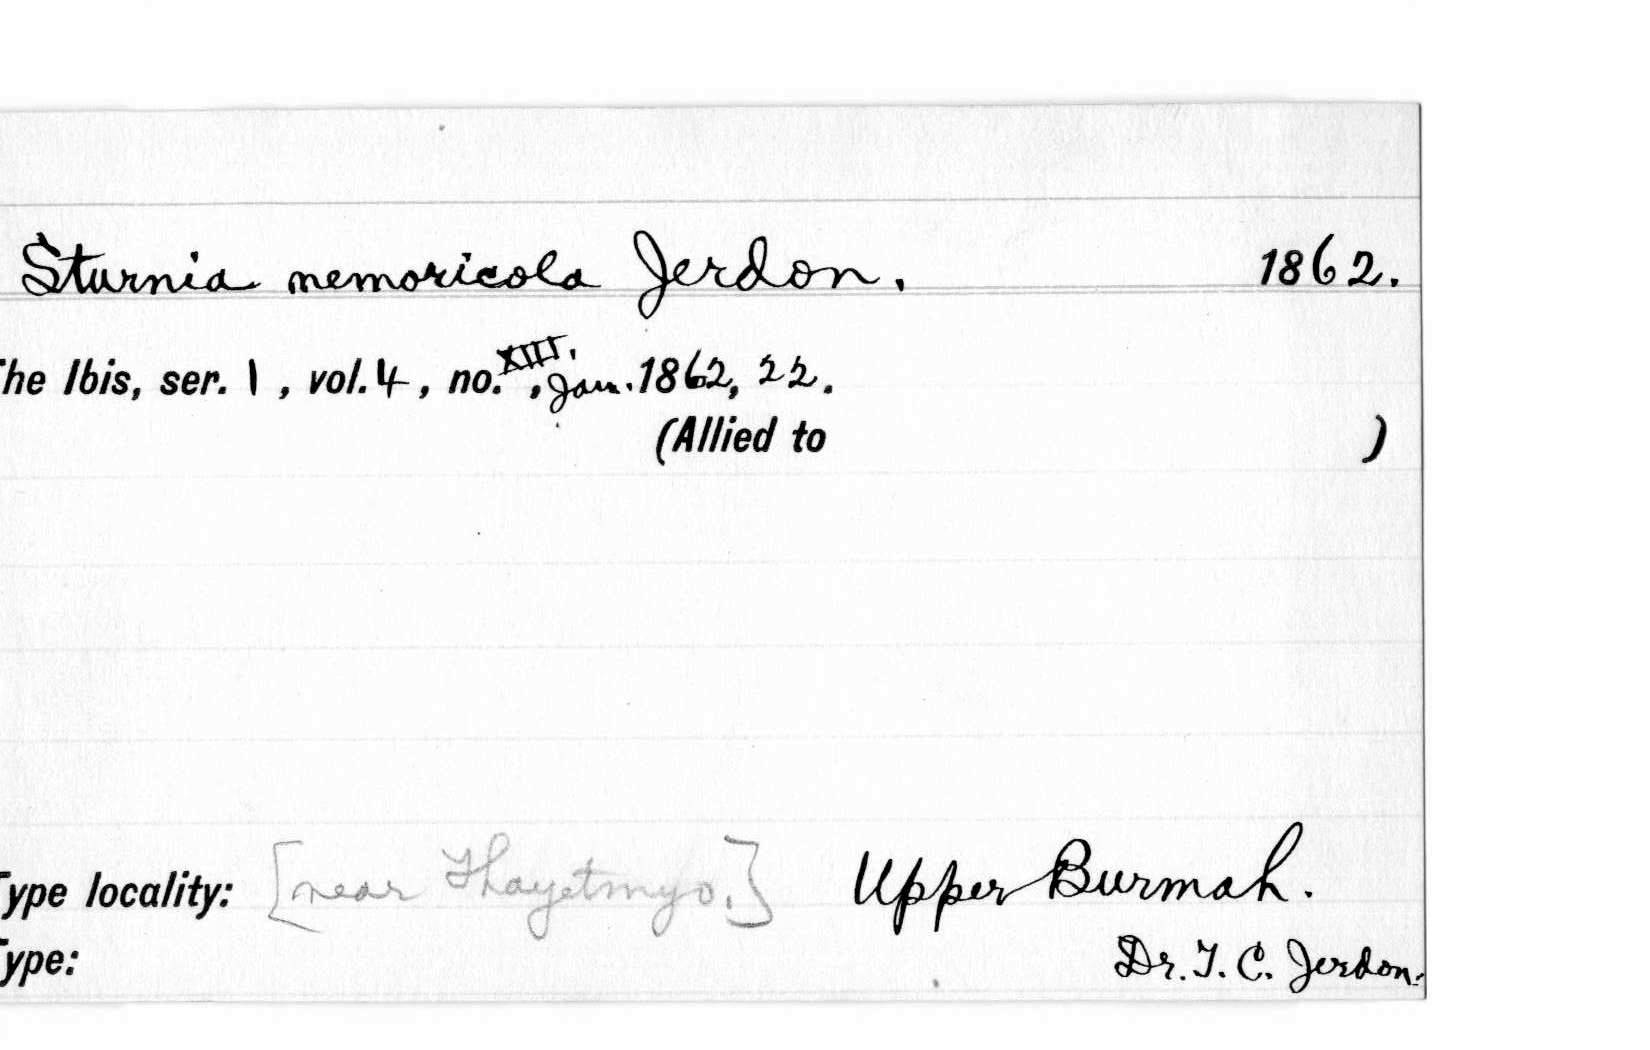 Sturnia nemoricola Jerdon. 1862.
The Ibis, ser. 1, vol. 4, no. XIII., Jan. 1862, 22.
(Allied to )
Type locality: [near Thayetmyo.] Upper Burmah.
Type: Dr. T. C. Jerdon.